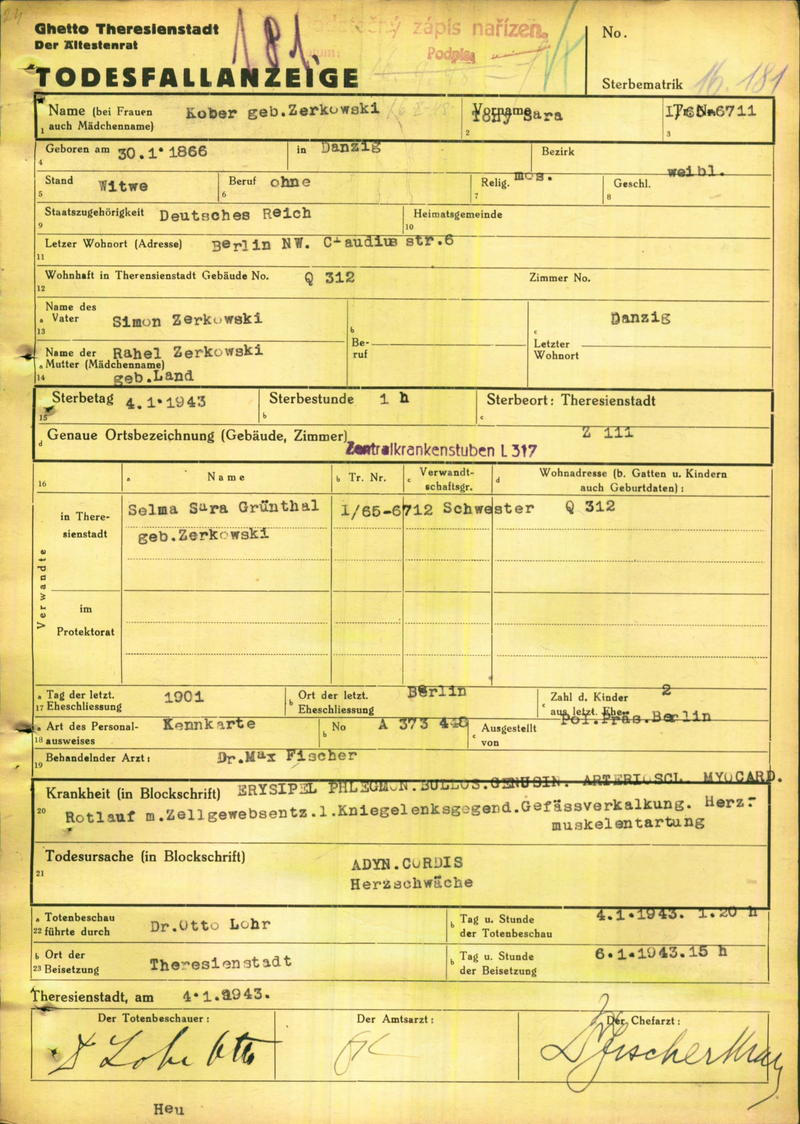 24
Ghetto Theresienstadt
Der Ältestenrat
TODESFALLANZEIGE
181
zápis nařízen
Podpis
No.
Sterbematrik 16. 181
Name (bei Frauen auch Mädchenname) Kober geb.Zerkowski
1
Vorname Sara
2
Tr. Nr. 6711
3
Geboren am 30.1.1866 in Danzig Bezirk
4
Stand Witwe Beruf ohne Relig. mos. Geschl. weibl.
5 6 7 8
Staatszugehörigkeit Deutsches Reich Heimatsgemeinde
9 10
Letzer Wohnort (Adresse) Berlin NW. Claudius str.6
11
Wohnhaft in Therensienstadt Gebäude No. Q 312 Zimmer No.
12
Name des
a Vater Simon Zerkowski
13
b Beruf
c Letzter Wohnort Danzig
Name der Rahel Zerkowski
a Mutter (Mädchenname)
14 geb.Land
Sterbetag 4.1.1943 Sterbestunde 1 h Sterbeort: Theresienstadt
15 b c
d Genaue Ortsbezeichnung (Gebäude, Zimmer) Z 111
Zentralkrankenstuben L 317
16 a Name b Tr. Nr. c Verwandtschaftsgr. d Wohnadresse (b. Gatten u. Kindern auch Geburtdaten):
Verwandte
in Theresienstadt
Selma Sara Grünthal I/65-6712 Schwester Q 312
geb.Zerkowski
im Protektorat
a Tag der letzt. 1901 b Ort der letzt. Berlin c Zahl d. Kinder 2
17 Eheschliessung Eheschliessung aus letzt. Ehe
a Art des Personal- Kennkarte b No A 373 448 c Ausgestellt Pol.Präs.Berlin
18 ausweises von
Behandelnder Arzt: Dr.Max Fischer
19
Krankheit (in Blockschrift) ERYSIPEL PHLEGMON.BULLOS. ARTERIOSCL. MYOCARD.
20 Rotlauf m.Zellgewebsentz.l.Kniegelenksgegend.Gefässverkalkung. Herz-
muskelentartung
Todesursache (in Blockschrift) ADYN.CORDIS
21 Herzschwäche
a Totenbeschau Dr.Otto Lohr b Tag u. Stunde 4.1.1943. 1.20 h
22 führte durch der Totenbeschau
b Ort der Theresienstadt b Tag u. Stunde 6.1.1943.15 h
23 Beisetzung der Beisetzung
Theresienstadt, am 4.1.1943.
Der Totenbeschauer: Der Amtsarzt: Der Chefarzt:
Heu